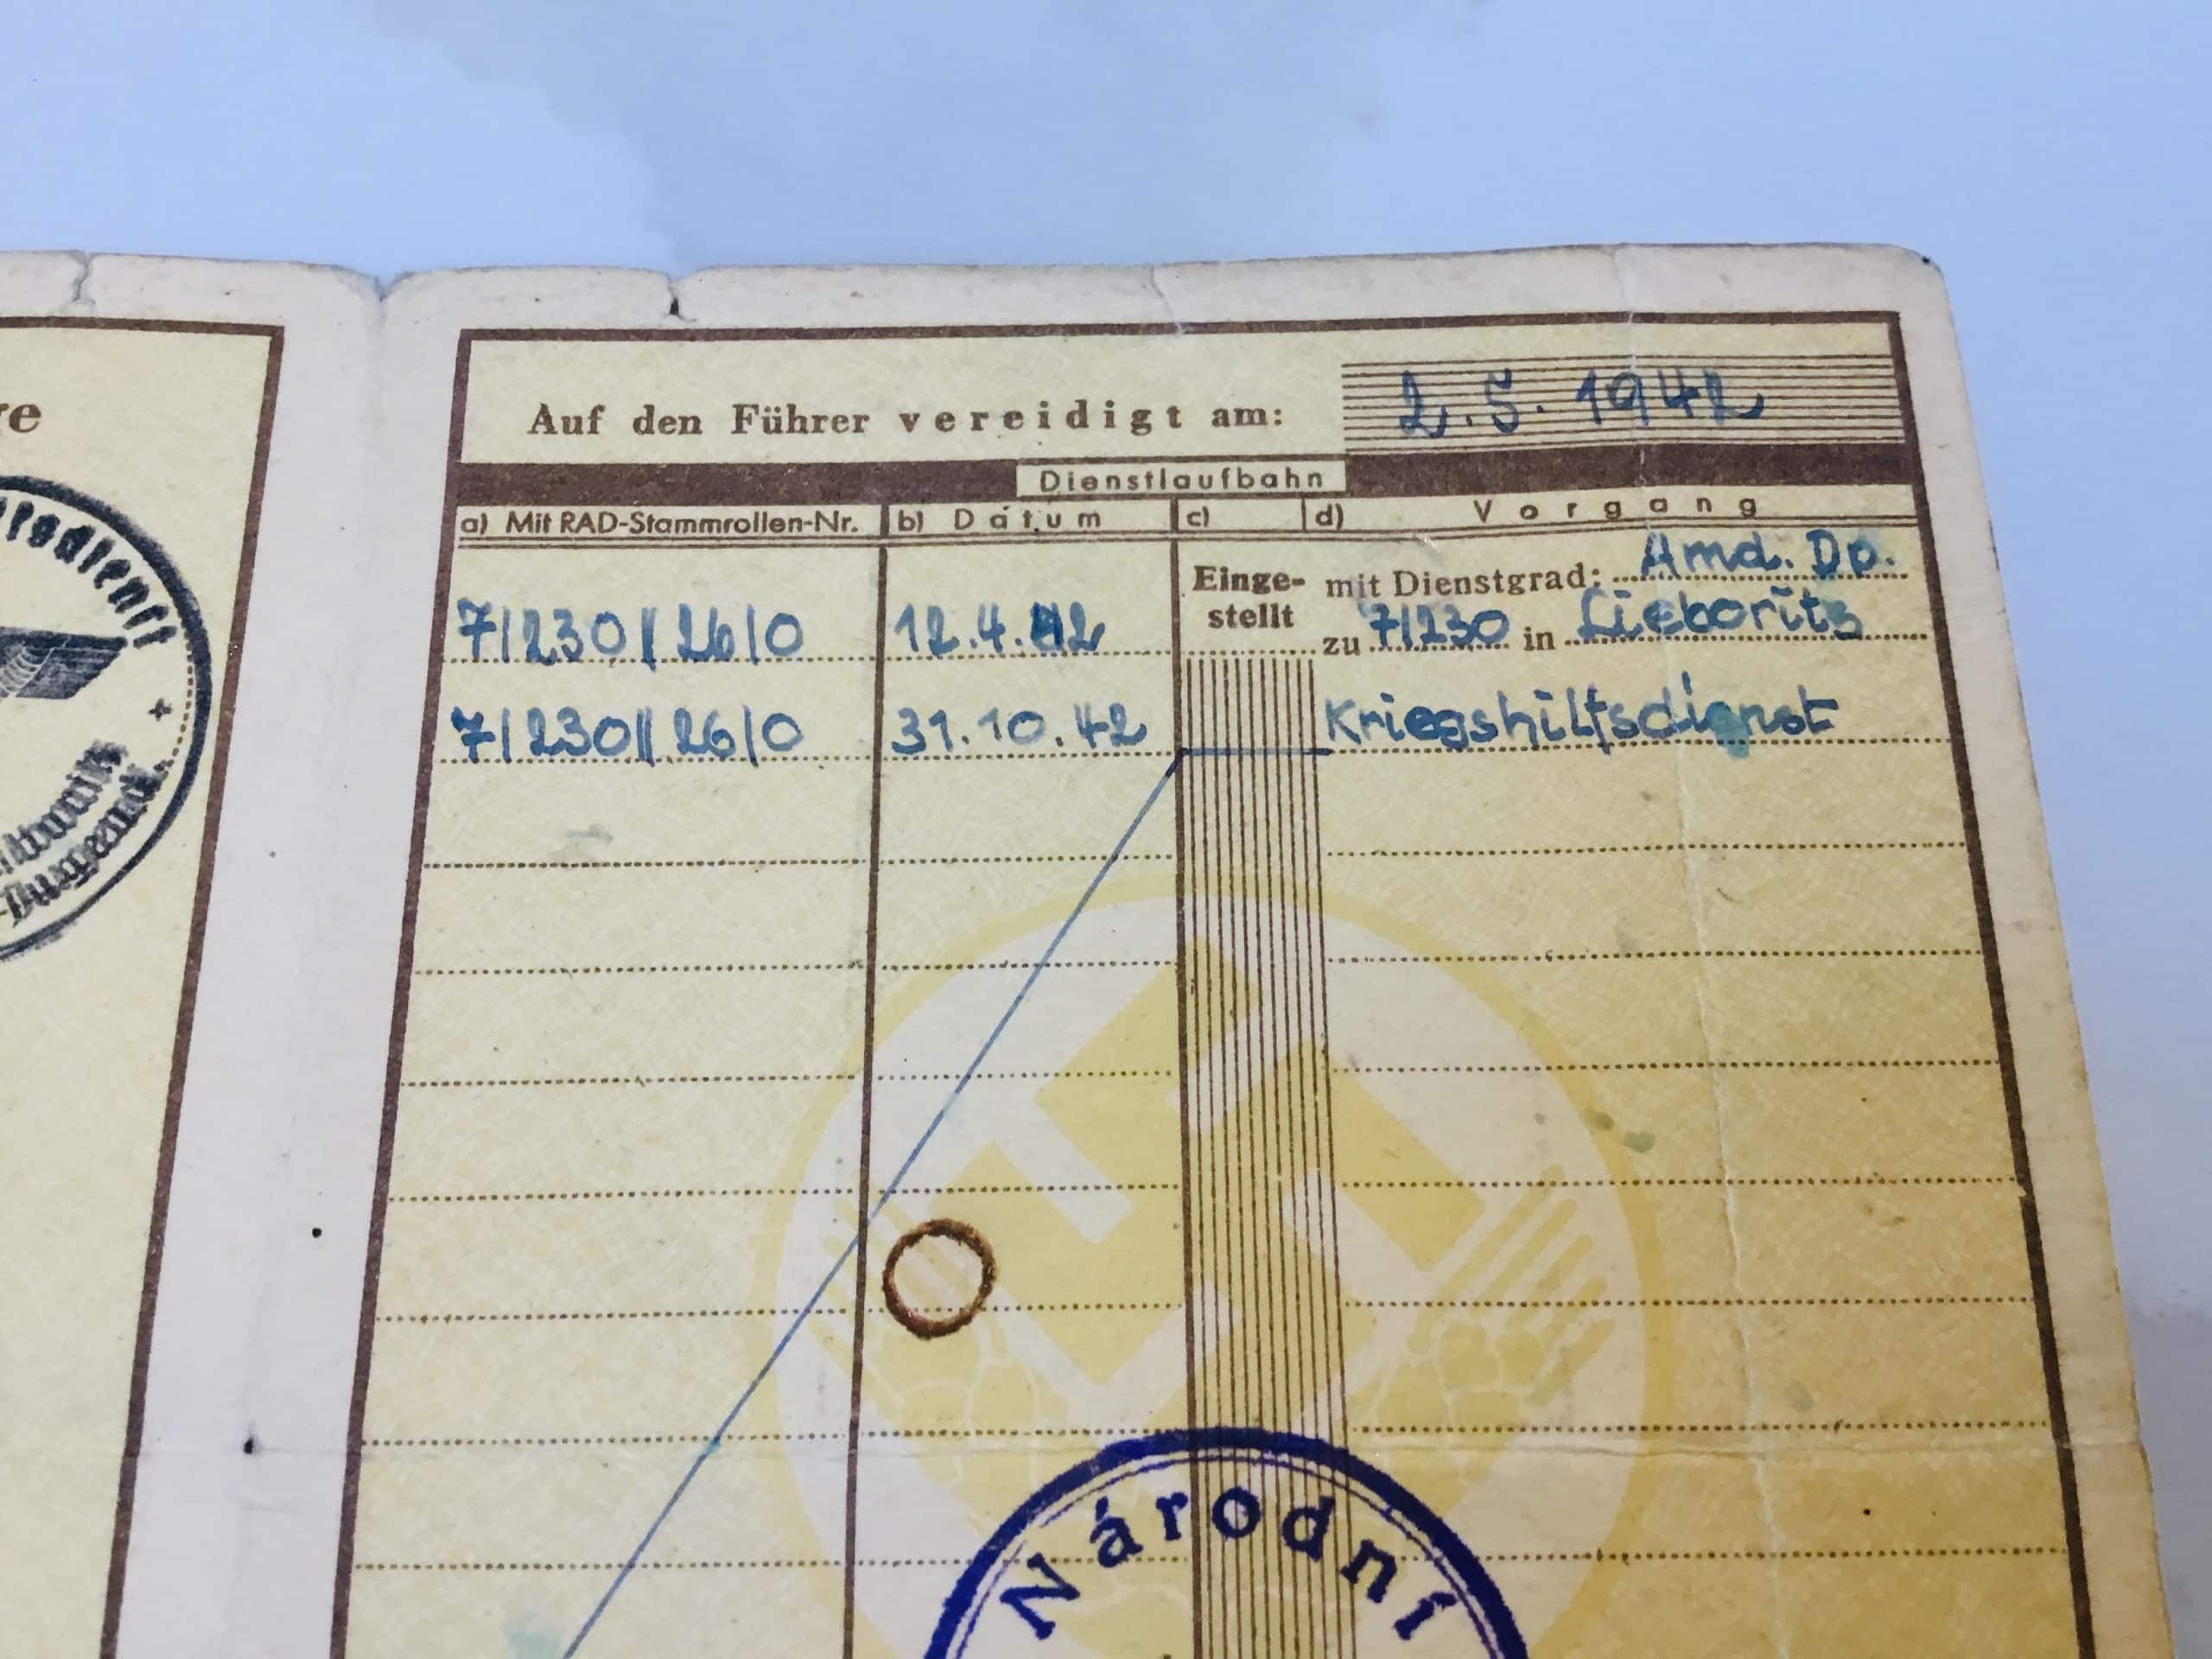 Auf den Führer vereidigt am: 2.5.1942
Dienstlaufbahn
a) Mit RAD-Stammrollen-Nr. b) Datum c) d) Vorgang
Einge- mit Dienstgrad: Amd. Do.
7/230/26/0 12.4.42 stellt zu 7/230 in Lieboritz
7/230/26/0 31.10.42 Kriegshilfsdienst
Národní